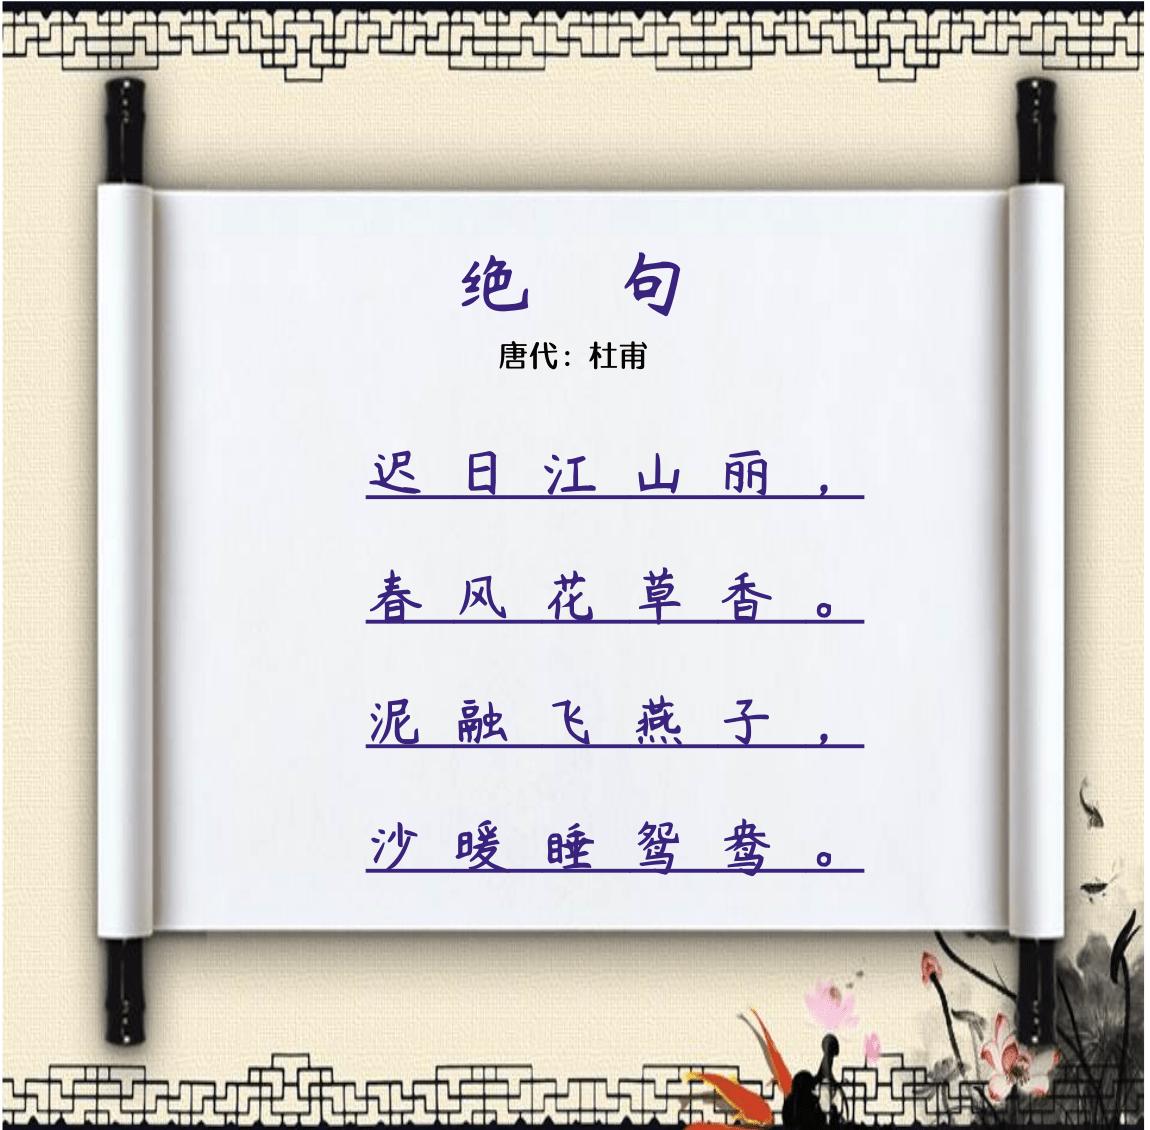 绝 句
唐代：杜甫
迟日江山丽，
春风花草香。
泥融飞燕子，
沙暖睡鸳鸯。